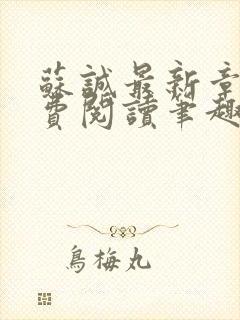 蘇誠最新章
費閱讀筆趣
鳥梅丸